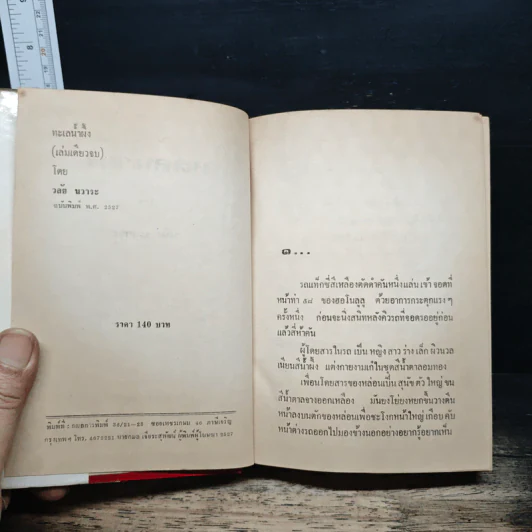 ทะเลน้ำผึ้ง
(เล่มเดียวจบ)
โดย
วลัย นวาระ
ฉบับพิมพ์ พ.ศ. 2527
ราคา 140 บาท
๑...
รถแท็กซี่สีเหลืองคัดดำคันหนึ่งแล่นเข้าจอดที่
หน้าท่า ๕๘ ของฮอโนลูลู ด้วยอาการกระตุกแรง ๆ
ครั้งหนึ่ง ก่อนจะนิ่งสนิทหลังคิวรถที่จอดรออยู่ก่อน
แล้วสี่ห้าคัน
ผู้โดยสารในรถ เป็นหญิงสาวร่างเล็ก ผิวนวล
เนียนสีน้ำผึ้ง แต่งกายงามเก๋ในชุดสีน้ำตาลอมทอง
เพื่อนโดยสารของหล่อนเป็นสุนัขตัวใหญ่ ขน
สีน้ำตาลซางออกเหลือง มันยงโย่ยงหยกขึ้นวางตีน
หน้าลงบนตักของหล่อนเพื่อชะโงกหน้าใหญ่เกือบคับ
หน้าต่างรถออกไปมองข้างนอกอย่างอยากรู้อยากเห็น